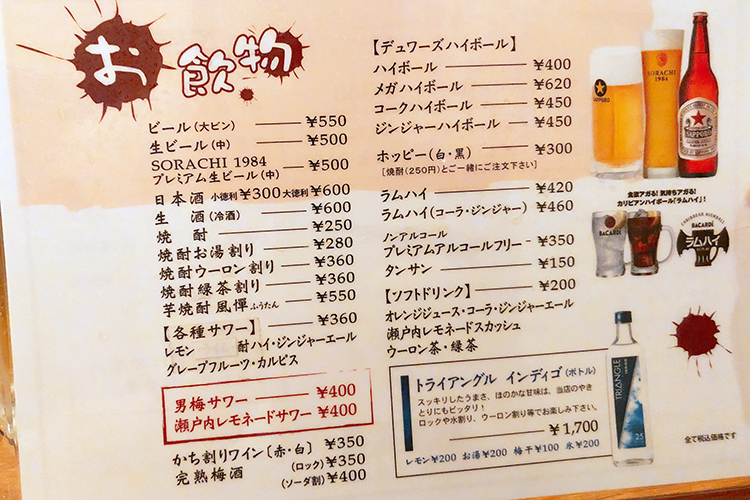 お飲物
ビール（大ビン） ¥550
生ビール（中） ¥500
SORACHI 1984
プレミアム生ビール（中） ¥500
日本酒 小徳利¥300 大徳利¥600
生酒（冷酒） ¥600
焼酎 ¥250
焼酎お湯割り ¥280
焼酎ウーロン割り ¥360
焼酎緑茶割り ¥360
芋焼酎風憚ふうたん ¥550
【各種サワー】 ¥360
レモン 酎ハイ・ジンジャーエール
グレープフルーツ・カルピス
男梅サワー ¥400
瀬戸内レモネードサワー ¥400
かち割りワイン〔赤・白〕 ¥350
完熟梅酒 （ロック） ¥350
（ソーダ割） ¥400
【デュワーズハイボール】
ハイボール ¥400
メガハイボール ¥620
コークハイボール ¥450
ジンジャーハイボール ¥450
ホッピー（白・黒） ¥300
［焼酎（250円）とご一緒にご注文下さい］
ラムハイ ¥420
ラムハイ（コーラ・ジンジャー） ¥460
ノンアルコール
プレミアムアルコールフリー ¥350
タンサン ¥150
【ソフトドリンク】 ¥200
オレンジジュース・コーラ・ジンジャーエール
瀬戸内レモネードスカッシュ
ウーロン茶・緑茶
トライアングル インディゴ（ボトル）
スッキリしたうまさ、ほのかな甘味は、当店のやき
とりにもピッタリ！
ロックや水割り、ウーロン割り等でお楽しみ下さい。
¥1,700
レモン¥200 お湯¥200 梅干¥100 氷¥200
SAPPORO
SORACHI
1984
SAPPORO
食欲アガる！気持ちアガる！
カリビアンハイボール「ラムハイ」！
BACARDÍ
BACARDÍ
CARIBBEAN HIGHBALL
BACARDÍ
ラムハイ
TRIANGLE
INDIGO
25
全て税込価格です